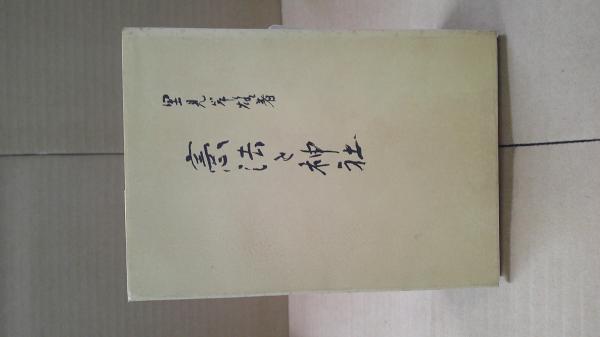 里見岸雄著
憲法と神社